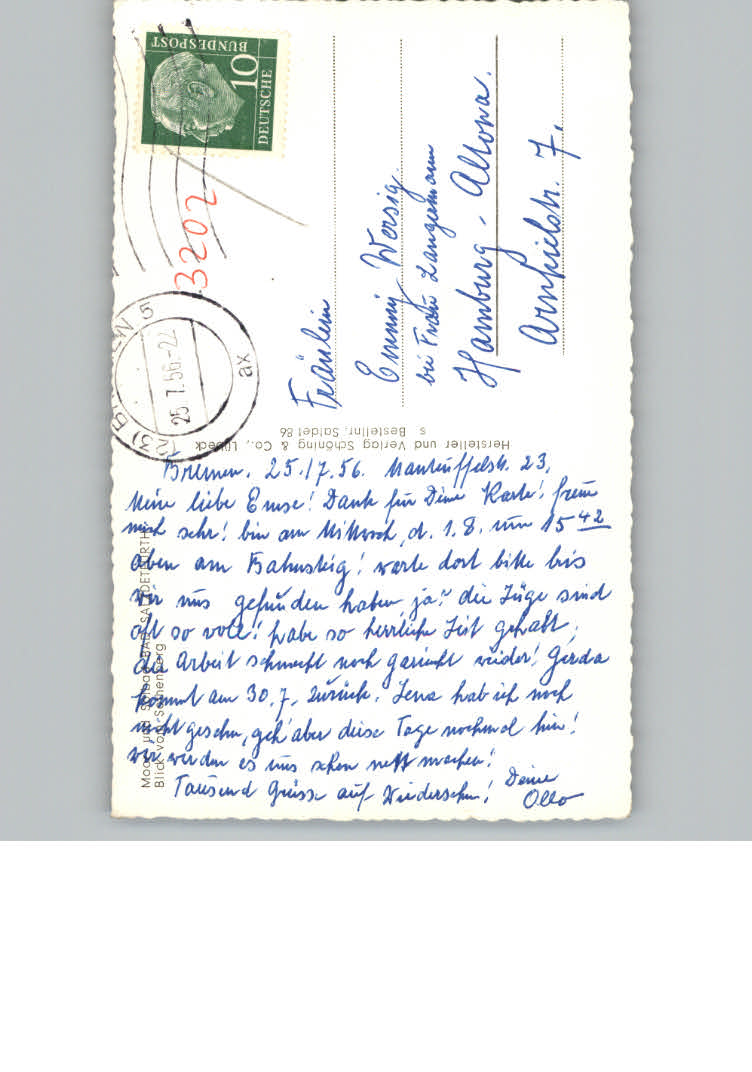 DEUTSCHE
BUNDESPOST
10
3202
(23) BREMEN 5
25.7.56-22
ax
Fräulein
Emmy Wersig.
bei Frau Langermann
Hamburg-Altona.
Arnkielstr. 7.
Hersteller und Verlag Schöning & Co., Lübeck
s Bestellnr. Saldet 86
Moor- und Solbad BAD SALZDETFURTH
Blick vom Sothenberg
Bremen. 25./7.56. Manteuffelstr. 23.
Meine liebe Emse! Dank für Deine Karte! freue
mich sehr! bin am Mittwoch, d. 1.8. um 15 42
oben am Bahnsteig! warte dort bitte bis
wir uns gefunden haben ja? die Züge sind
oft so voll! habe so herrliche Zeit gehabt,
die Arbeit schmeckt noch garnicht wieder! Gerda
kommt am 30.7. zurück. Lena hab ich noch
nicht gesehn, geh' aber diese Tage nochmal hin!
wir werden es uns schon nett machen!
Tausend Grüsse auf Wiedersehn! Deine
Ollo